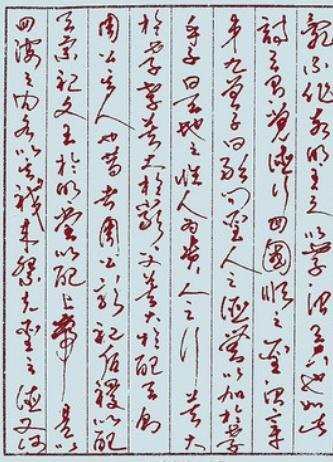 亂不作故明王之以孝治天下也如此
詩云有覺德行四國順之聖治章
第九曾子曰敢問聖人之德無以加於孝
乎子曰天地之性人為貴人之行莫大
於孝孝莫大於嚴父莫大於配天則
周公其人也昔者周公郊祀后稷以配
天宗祀文王於明堂以配上帝是以
四海之內各以其職來祭夫聖之德又何